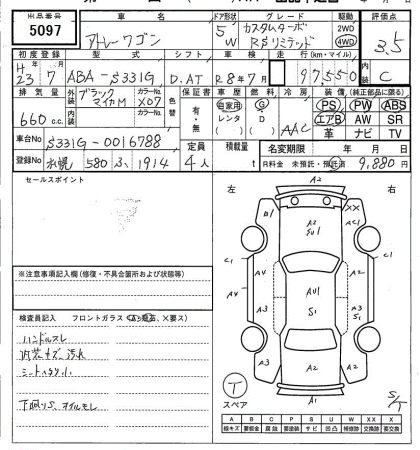 出品番号 車名 ドア形状 グレード 駆動 評価点
5097 アトレーワゴン 5 W カスタムターボ RSリミテッド 2WD 4WD 3.5
初度登録 型式 シフト 車検 走行(km・マイル) 内装
H 23 7 ABA-S331G D.AT R8年7月 97550 C
排気量 外装 ブラックマイカM カラーNo. X07 色替 保証書 車歴 燃料 冷房 装備(純正部品に限る)
660 c.c. 内装 カラーNo. 有・無 自家用 レンタ ( ) G D ( ) AAC PS PW ABS
エアB AW SR
革 ナビ TV
車台No S331G-0016788 定員 積載量 名変期限 年 月 日
登録No 水戸 580 1914 4人 t R料金 未預託・預託済 9,880円
セールスポイント
左 右
※注意事項記入欄(修復・不具合箇所および状態等)
検査員記入 フロントガラス
ハンドルスレ
内装キズ、汚れ
A2
B1 XX
A2
SU1 AC1
C1 C1
A4 A4 AU1 A3
A3 S1
A3 A2 A2
A1
T
スペア
S/T
A B C P S U W X XX
線キズ 要板金 腐蝕 要塗装 サビ 凹凸 補修跡 要交換 交換済